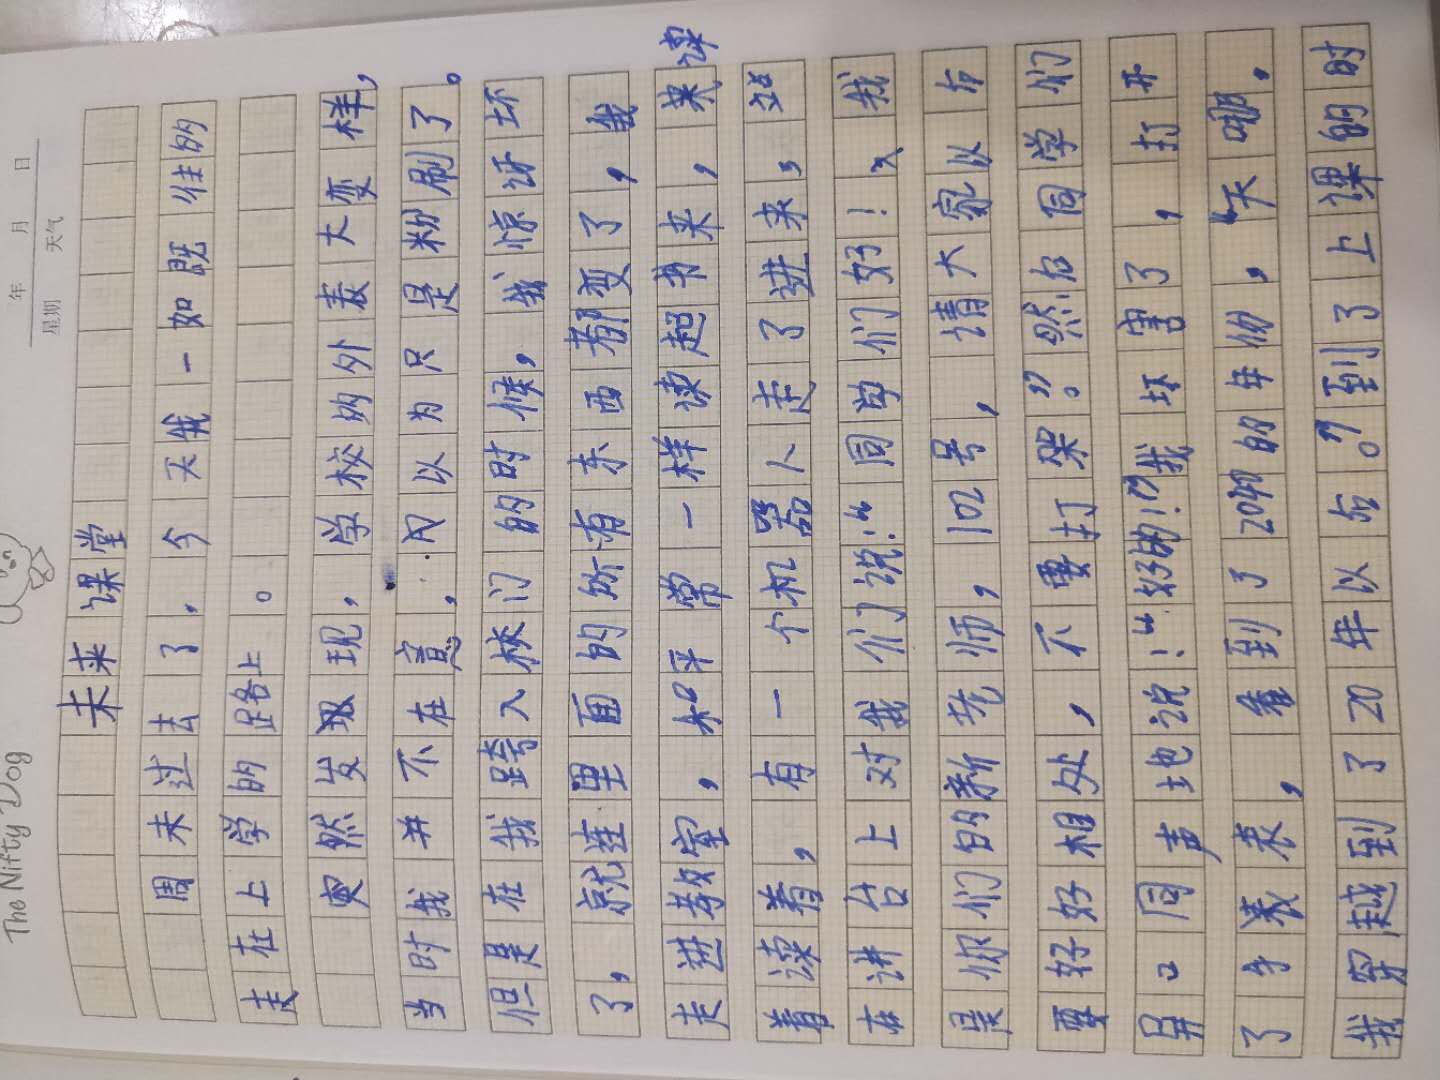 The Nifty Dog
年 月 日
星期 天气
未来课堂
周末过去了，今天我一如既往的
走在上学的路上。
突然发现，学校的外表大变样，
当时我并不在意，只以为只是粉刷了。
但是在我跨入校门的时候，我惊讶坏
了，就连里面的所有东西都变了，我
走进教室，和平常一样读起书来，课
着读着，有一个机器人走了进来，站
在讲台上对我们说：“同学们好！我
是你们的新老师，102号，请大家以后
要好好相处，不要打架。”然后同学们
异口同声地说：“好的！”我坏害了，打开
了手表，看到了2049的年份，“天哪，
我穿越到了20年以后。”到了上课的时